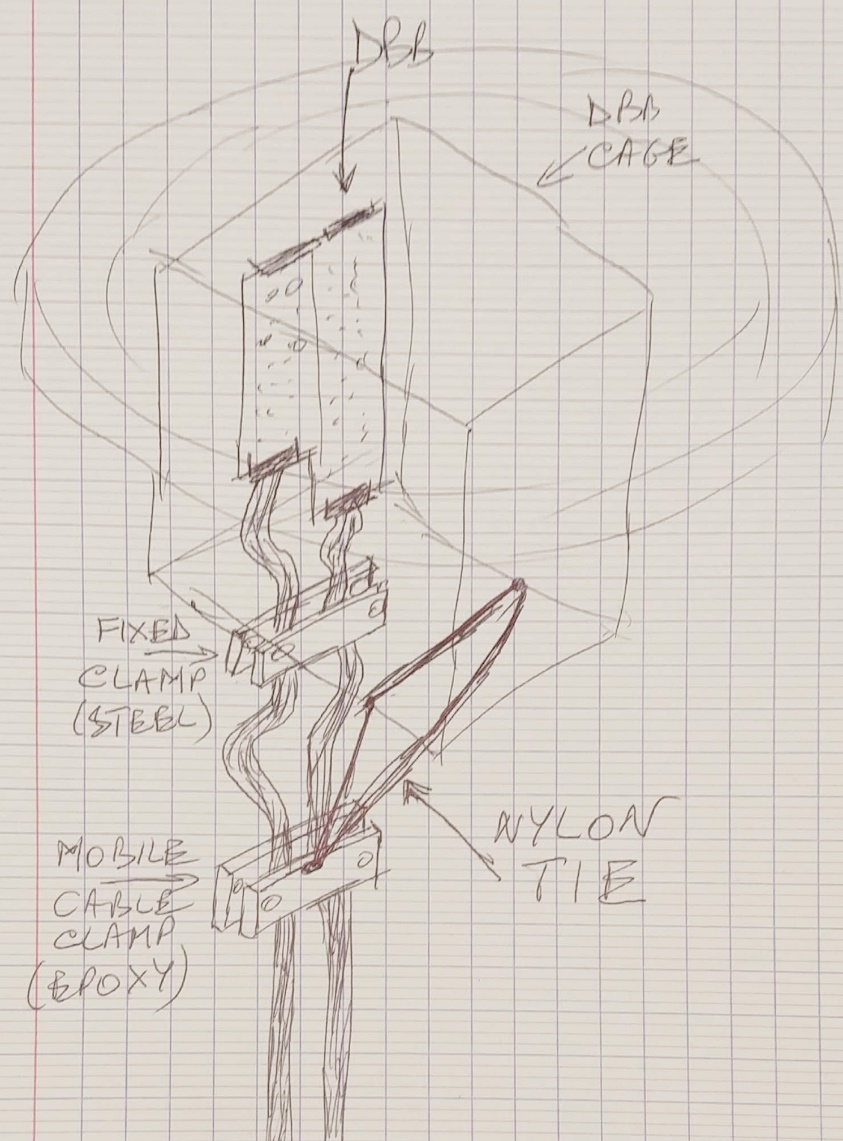 DBB
DBB
CAGE
FIXED
CLAMP
(STEEL)
NYLON
TIE
MOBILE
CABLE
CLAMP
(EPOXY)